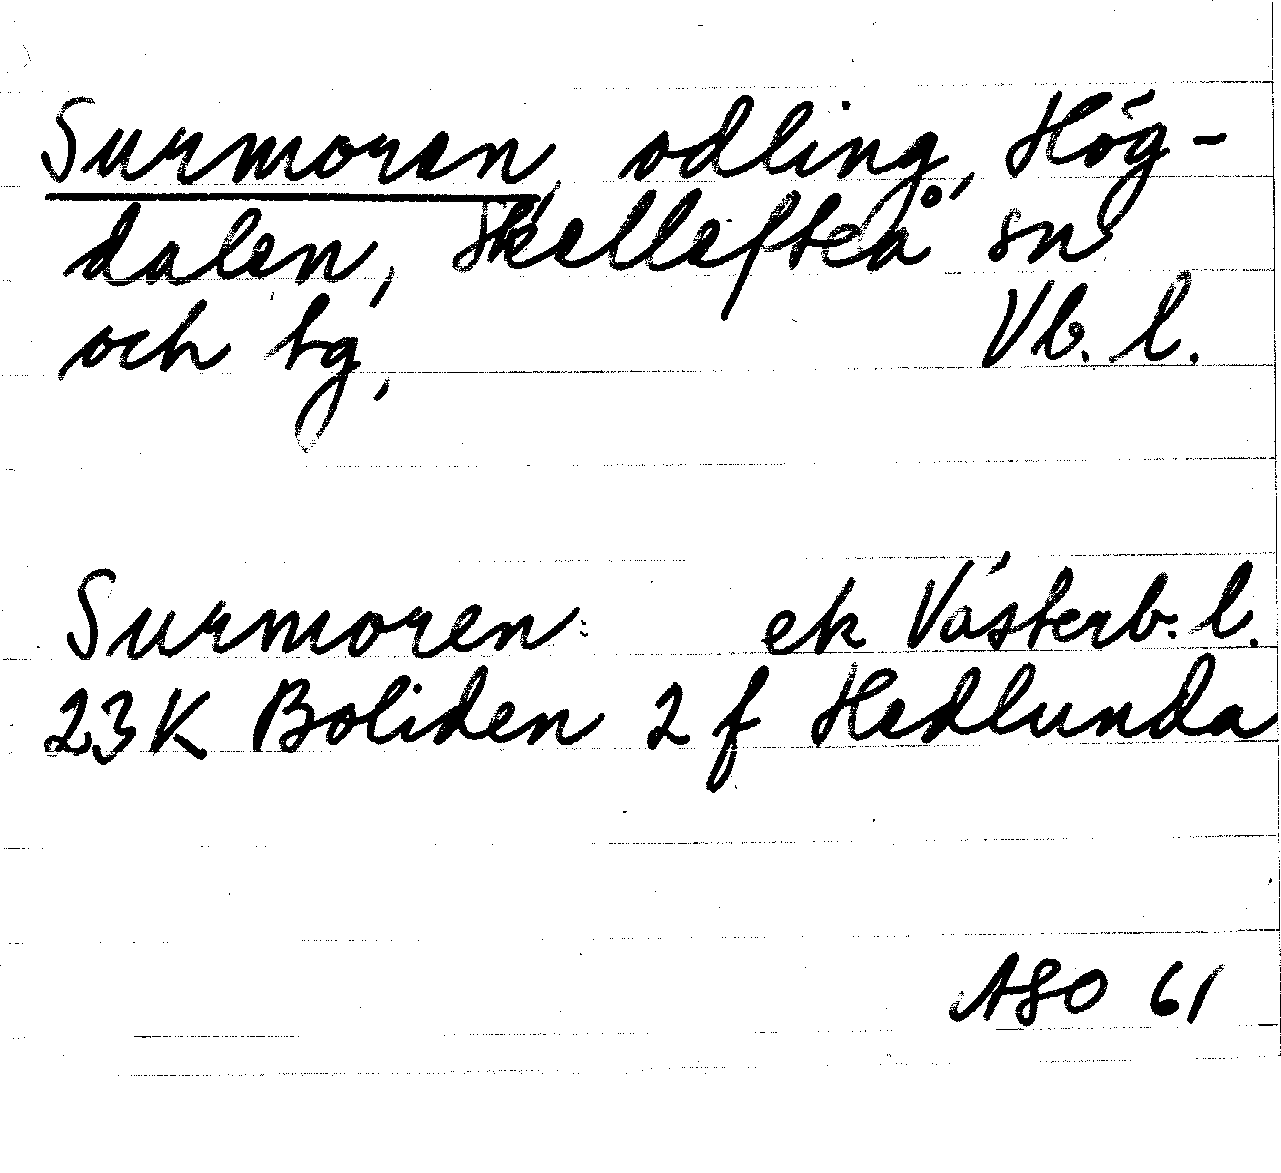 Surmoren, odling, Hög-
dalen, Skellefteå sn
och tg, Vb. l.
Surmoren ek Västerb. l.
23K Boliden 2 f Hedlunda
ASO 61